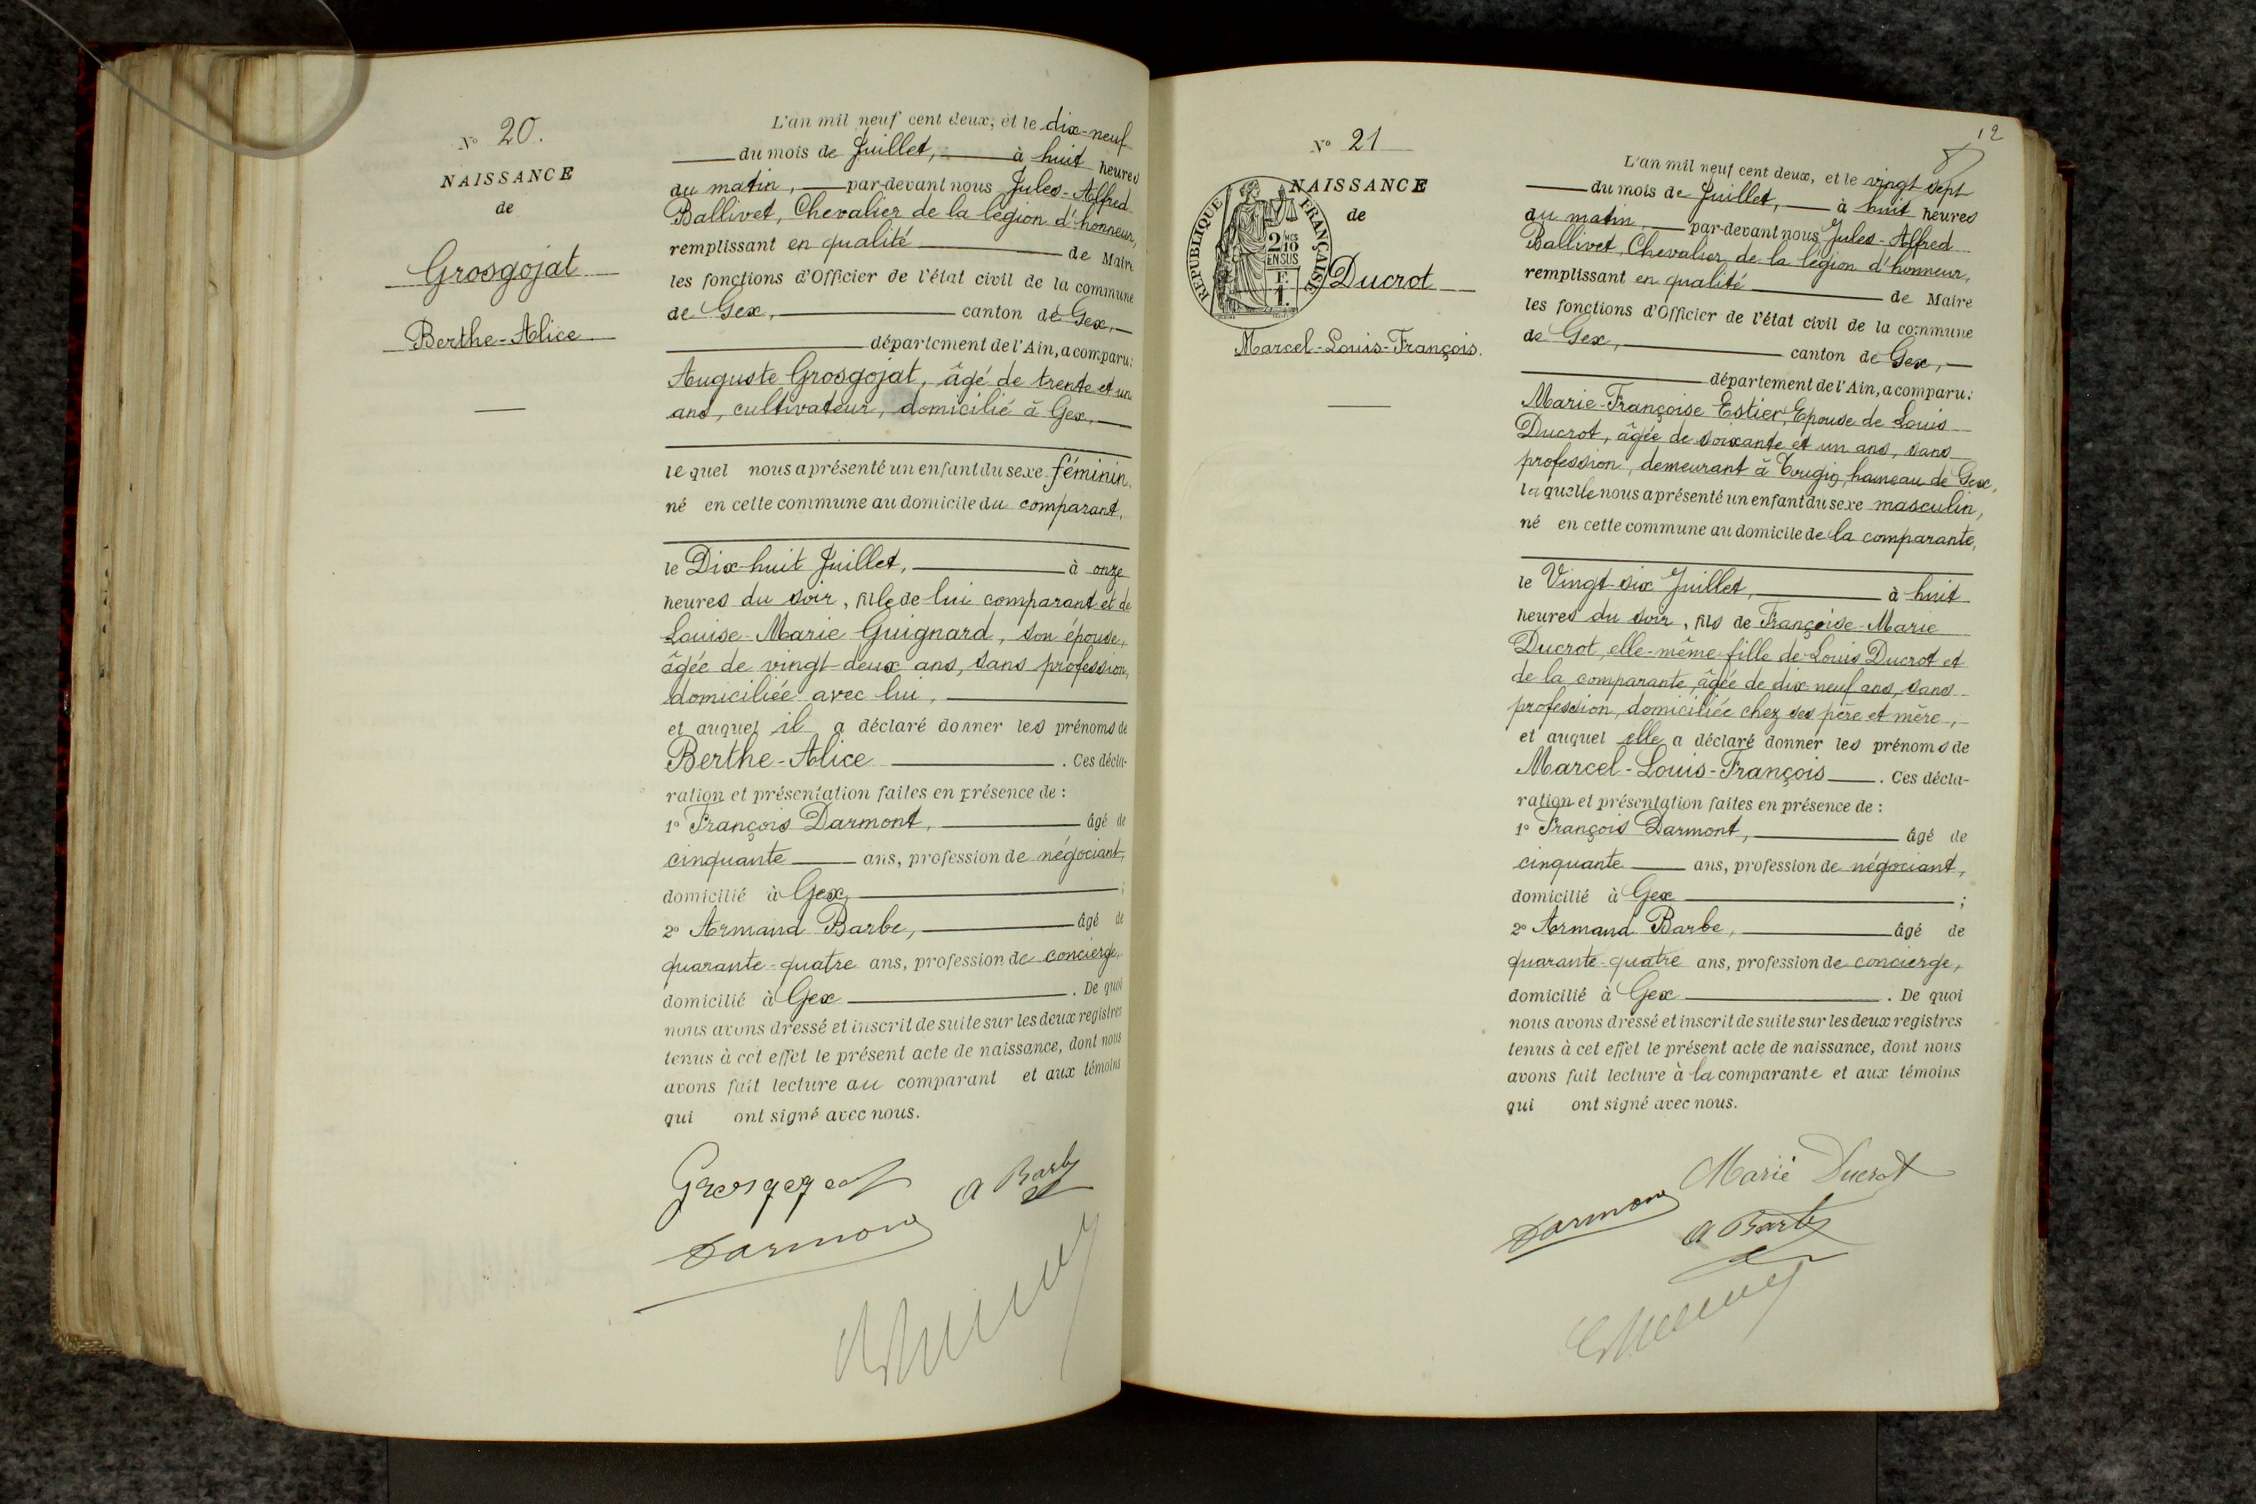 N° 20.
NAISSANCE
de
Grosgojat
Berthe-Alice
L'an mil neuf cent deux, et le dix-neuf
du mois de Juillet, à huit heures
du matin, par-devant nous Jules-Alfred
Ballivet, Chevalier de la légion d'honneur,
remplissant en qualité de Maire
les fonctions d'Officier de l'état civil de la commune
de Gex, canton de Gex,
département de l'Ain, a comparu:
Auguste Grosgojat, âgé de trente et un
ans, cultivateur, domicilié à Gex,
lequel nous a présenté un enfant du sexe féminin,
né en cette commune au domicile du comparant,
le Dix-huit Juillet, à onze
heures du soir, fille de lui comparant et de
Louise-Marie Guignard, son épouse,
âgée de vingt-deux ans, sans profession,
domiciliée avec lui,
et auquel il a déclaré donner les prénoms de
Berthe-Alice. Ces décla-
ration et présentation faites en présence de :
1° François Darmont, âgé de
cinquante ans, profession de négociant,
domicilié à Gex, ;
2° Armand Barbe, âgé de
quarante-quatre ans, profession de concierge,
domicilié à Gex. De quoi
nous avons dressé et inscrit de suite sur les deux registres
tenus à cet effet le présent acte de naissance, dont nous
avons fait lecture au comparant et aux témoins
qui ont signé avec nous.
Grosgogeat
A Barbe
Darmont
12
N° 21
NAISSANCE
de
RÉPUBLIQUE FRANÇAISE
2/10
EN SUS
F.
1.
Ducrot
Marcel-Louis-François.
L'an mil neuf cent deux, et le vingt sept
du mois de Juillet, à huit heures
du matin, par-devant nous Jules-Alfred
Ballivet, Chevalier de la légion d'honneur,
remplissant en qualité de Maire
les fonctions d'Officier de l'état civil de la commune
de Gex, canton de Gex,
département de l'Ain, a comparu:
Marie-Françoise Estier, Epouse de Louis
Ducrot, âgée de soixante et un ans, sans
profession, demeurant à Tougin, hameau de Gex,
laquelle nous a présenté un enfant du sexe masculin,
né en cette commune au domicile de la comparante,
le Vingt-six Juillet, à huit
heures du soir, fils de Françoise-Marie
Ducrot, elle-même fille de Louis Ducrot et
de la comparante, âgée de dix-neuf ans, sans
profession, domiciliée chez ses père et mère,
et auquel elle a déclaré donner les prénoms de
Marcel-Louis-François. Ces décla-
ration et présentation faites en présence de :
1° François Darmont, âgé de
cinquante ans, profession de négociant,
domicilié à Gex ;
2° Armand Barbe, âgé de
quarante-quatre ans, profession de concierge,
domicilié à Gex. De quoi
nous avons dressé et inscrit de suite sur les deux registres
tenus à cet effet le présent acte de naissance, dont nous
avons fait lecture à la comparante et aux témoins
qui ont signé avec nous.
Marie Ducrot
Darmont
A Barbe